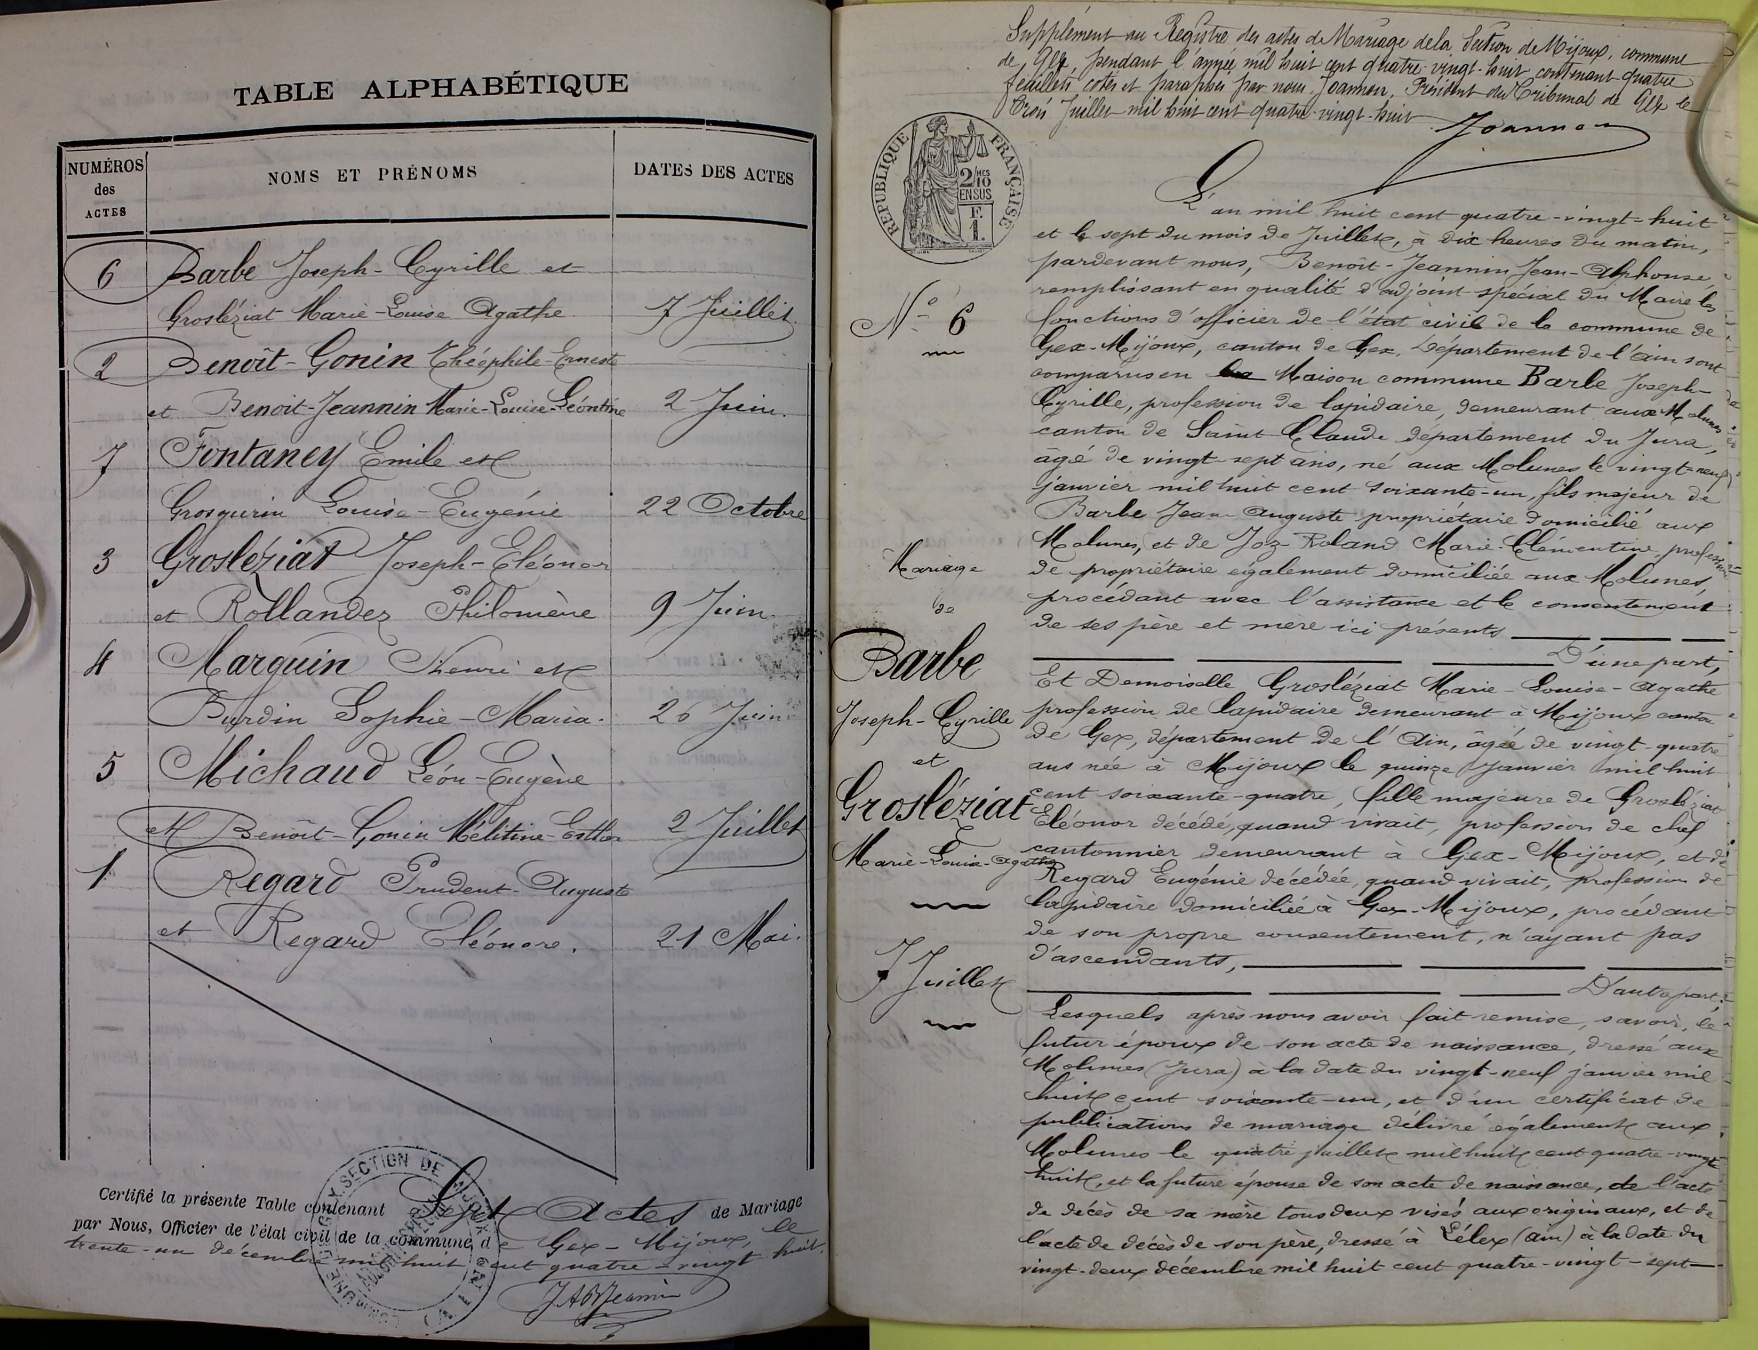 TABLE ALPHABÉTIQUE
NUMÉROS des ACTES
NOMS ET PRÉNOMS
DATES DES ACTES
6 Barbe Joseph-Cyrille et
Grosléziat Marie-Louise Agathe 7 Juillet.
2 Benoît-Gonin Théophile-Ernest
et Benoit-Jeannin Marie-Louise-Léontine 2 Juin.
7 Fontaney Emile et
Grosgurin Louise-Eugénie 22 Octobre
3 Grosléziat Joseph-Eléonor
et Rollandez Philomène 9 Juin
4 Marguin Henri et
Burdin Sophie-Maria. 26 Juin
5 Michaud Léon-Eugène
et Benoît-Gonin Mélitine-Esther 2 Juillet
1 Regard Prudent-Auguste
et Regard Eléonore. 21 Mai.
Certifié la présente Table contenant Sept Actes de Mariage
par Nous, Officier de l'état civil de la commune de Gex-Mijoux, le
trente-un décembre mil huit cent quatre-vingt huit.
Supplément au Registre des actes de Mariage de la Section de Mijoux, commune
de Gex, pendant l'année mil huit cent quatre-vingt-huit contenant quatre
feuillets cotés et paraphés par nous Joannon, Président du Tribunal de Gex le
trois Juillet mil huit cent quatre-vingt-huit
Joannon
RÉPUBLIQUE FRANÇAISE
2/10 EN SUS
F. 1.
L'an mil huit cent quatre-vingt-huit
et le sept du mois de Juillet, à dix heures du matin,
pardevant nous, Benoît-Jeannin Jean-Alphonse,
remplissant en qualité d'adjoint spécial du Maire les
N° 6
fonctions d'officier de l'état civil de la commune de
Gex-Mijoux, canton de Gex, Département de l'Ain sont
comparus en Maison commune Barbe Joseph-
Cyrille, profession de lapidaire, demeurant aux Molunes
canton de Saint Claude département du Jura,
âgé de vingt-sept ans, né aux Molunes le vingt-neuf
janvier mil huit cent soixante-un, fils majeur de
Barbe Jean-Auguste propriétaire domicilié aux
Molunes, et de Joz-Roland Marie-Clémentine, profession
Mariage
de propriétaire également domiciliée aux Molunes,
procédant avec l'assistance et le consentement
de
de ses père et mère ici présents
D'une part,
Barbe
Et Demoiselle Grosléziat Marie-Louise-Agathe
Joseph-Cyrille
profession de lapidaire demeurant à Mijoux canton
de Gex, département de l'Ain, âgée de vingt-quatre
et
ans née à Mijoux le quinze Janvier mil huit
Grosléziat
cent soixante-quatre, fille majeure de Grosléziat
Eléonor décédé, quand vivait, profession de chef
Marie-Louise-Agathe
cantonnier demeurant à Gex-Mijoux, et de
Regard Eugénie décédée, quand vivait, profession de
lapidaire domiciliée à Gex-Mijoux, procédant
de son propre consentement, n'ayant pas
d'ascendants,
7 Juillet
D'autre part,
Lesquels après nous avoir fait remise, savoir, le
futur époux de son acte de naissance, dressé aux
Molunes (Jura) à la date du vingt-neuf janvier mil
huit cent soixante-un, et d'un certificat de
publications de mariage délivré également aux
Molunes le quatre juillet mil huit cent quatre-vingt
huit, et la future épouse de son acte de naissance, de l'acte
de décès de sa mère tous deux visés aux originaux, et de
l'acte de décès de son père, dressé à Lélex (ain) à la date du
vingt-deux décembre mil huit cent quatre-vingt-sept